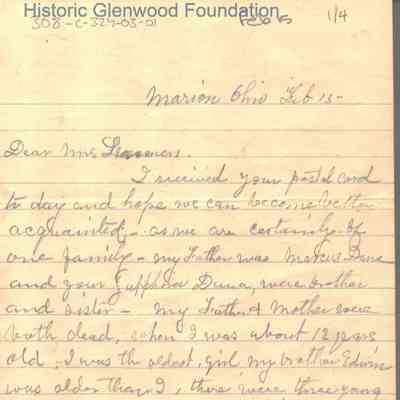 Historic Glenwood Foundation
308-C-324-03-01
1/4
Marion Ohio Feb 15-
Dear Mrs
I received your postal card
to day and hope we can become better
acquainted - as we are certainly of
one family - my Father was Marcus Dana
and your Dana, were brother
and sister - my Father & Mother were
both dead, when I was about 12 years
old, I was the oldest, girl, my brother Edwin
was older than I, there were three young